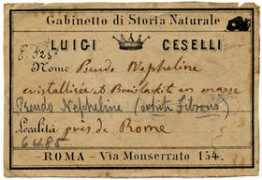 Gabinetto di Storia Naturale
LUIGI CESELLI
Nome Pseudo Nepheline
cristallisée et en masse
Pseudo Nepheline
Località près de Rome
6485
ROMA - Via Monserrato 154.